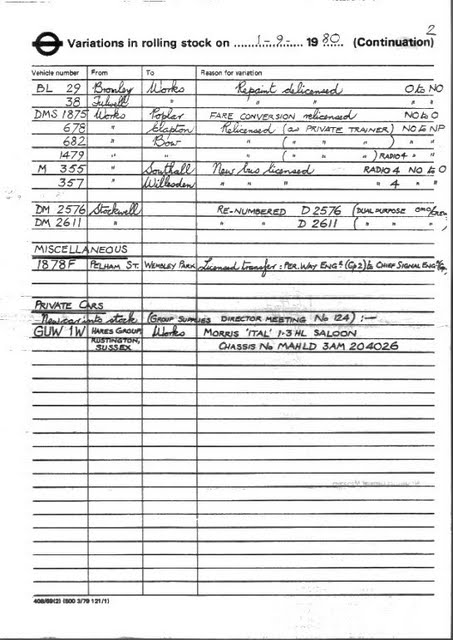 2
Variations in rolling stock on 1-9- 1980 (Continuation)
Vehicle number From To Reason for variation
BL 29 Bromley Works Repaint delicensed O to NO
38 Fulwell " " " "
DMS 1875 Works Poplar FARE CONVERSION relicensed NO to O
678 " Clapton Relicensed (as PRIVATE TRAINER) NO to NP
682 " Bow " ( " " ) " "
1479 " " " ( " " ) RADIO 4 " "
M 355 Southall New bus licensed RADIO 4 NO to O
357 Willesden " " " " 4 " "
DM 2576 Stockwell RE-NUMBERED D 2576 (DUAL PURPOSE OMO/Crew)
DM 2611 " " " D 2611 ( " " )
MISCELLANEOUS
1878F PELHAM ST. WEMBLEY PARK Licensed transfer: PER. WAY ENGR (Gp 2) to CHIEF SIGNAL ENGR
PRIVATE CARS
New car into stock (GROUP SUPPLIES DIRECTOR MEETING No 124) :-
GUW 1W HARES GROUP, Works MORRIS 'ITAL' 1·3 HL SALOON
RUSTINGTON, SUSSEX CHASSIS No MAHLD 3AM 204026
408/69(2) (500 3/79 121/1)